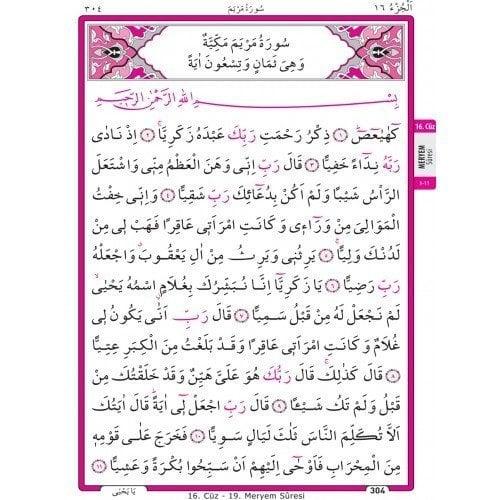 ٣٠٤ سُورَةُ مَرْيَمَ اَلْجُزْءُ ١٦
سُورَةُ مَرْيَمَ مَكِّيَّةٌ
وَهِيَ ثَمَانٍ وَتِسْعُونَ اٰيَةً
بِسْــــمِ اللّٰهِ الرَّحْمٰنِ الرَّحٖيمِ
كٓهٰيٰعٓصٓ ﴿١﴾ ذِكْرُ رَحْمَتِ رَبِّكَ عَبْدَهُ زَكَرِيَّا ﴿٢﴾ اِذْ نَادٰى
رَبَّهُ نِدَٓاءً خَفِيًّا ﴿٣﴾ قَالَ رَبِّ اِنّٖي وَهَنَ الْعَظْمُ مِنّٖي وَاشْتَعَلَ
الرَّأْسُ شَيْبًا وَلَمْ اَكُنْ بِدُعَٓائِكَ رَبِّ شَقِيًّا ﴿٤﴾ وَاِنّٖي خِفْتُ
الْمَوَالِيَ مِنْ وَرَٓاءٖي وَكَانَتِ امْرَاَتٖي عَاقِرًا فَهَبْ لٖي مِنْ
لَدُنْكَ وَلِيًّا ﴿٥﴾ يَرِثُنٖي وَيَرِثُ مِنْ اٰلِ يَعْقُوبَ وَاجْعَلْهُ
رَبِّ رَضِيًّا ﴿٦﴾ يَا زَكَرِيَّٓا اِنَّا نُبَشِّرُكَ بِغُلَامٍ اسْمُهُ يَحْيٰى
لَمْ نَجْعَلْ لَهُ مِنْ قَبْلُ سَمِيًّا ﴿٧﴾ قَالَ رَبِّ اَنّٰى يَكُونُ لٖي
غُلَامٌ وَكَانَتِ امْرَاَتٖي عَاقِرًا وَقَدْ بَلَغْتُ مِنَ الْكِبَرِ عِتِيًّا
﴿٨﴾ قَالَ كَذٰلِكَ قَالَ رَبُّكَ هُوَ عَلَيَّ هَيِّنٌ وَقَدْ خَلَقْتُكَ مِنْ
قَبْلُ وَلَمْ تَكُ شَيْـًٔا ﴿٩﴾ قَالَ رَبِّ اجْعَلْ لٖٓي اٰيَةً قَالَ اٰيَتُكَ
اَلَّا تُكَلِّمَ النَّاسَ ثَلٰثَ لَيَالٍ سَوِيًّا ﴿١٠﴾ فَخَرَجَ عَلٰى قَوْمِهٖ
مِنَ الْمِحْرَابِ فَاَوْحٰٓى اِلَيْهِمْ اَنْ سَبِّحُوا بُكْرَةً وَعَشِيًّا ﴿١١﴾
يَا يَحْيٰى
16. Cüz - 19. Meryem Sûresi
304
16. Cüz
MERYEM
SÛRESİ
1-11